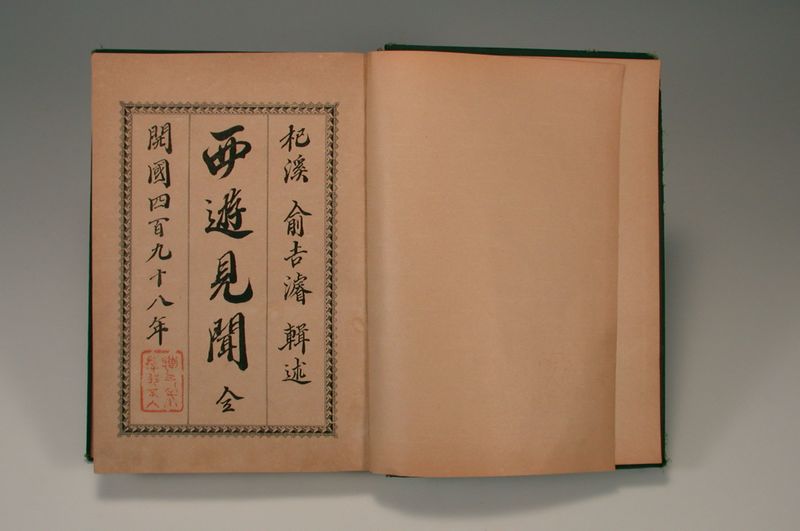 杞溪 兪吉濬 輯述
西遊見聞 全
開國四百九十八年